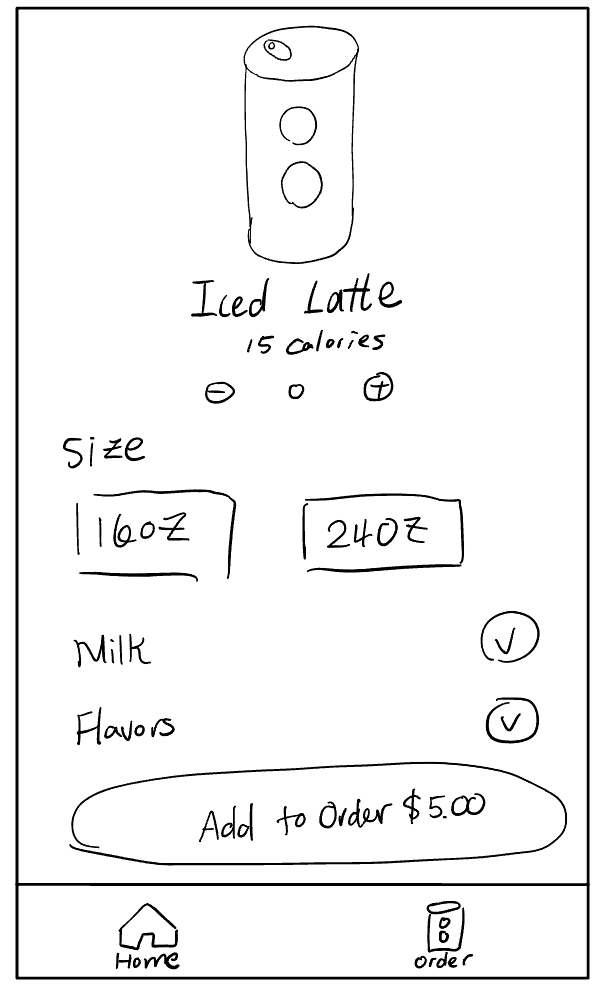 Iced Latte
15 calories
- 0 +
Size
16oz 24oz
Milk
Flavors
Add to Order $5.00
Home Order